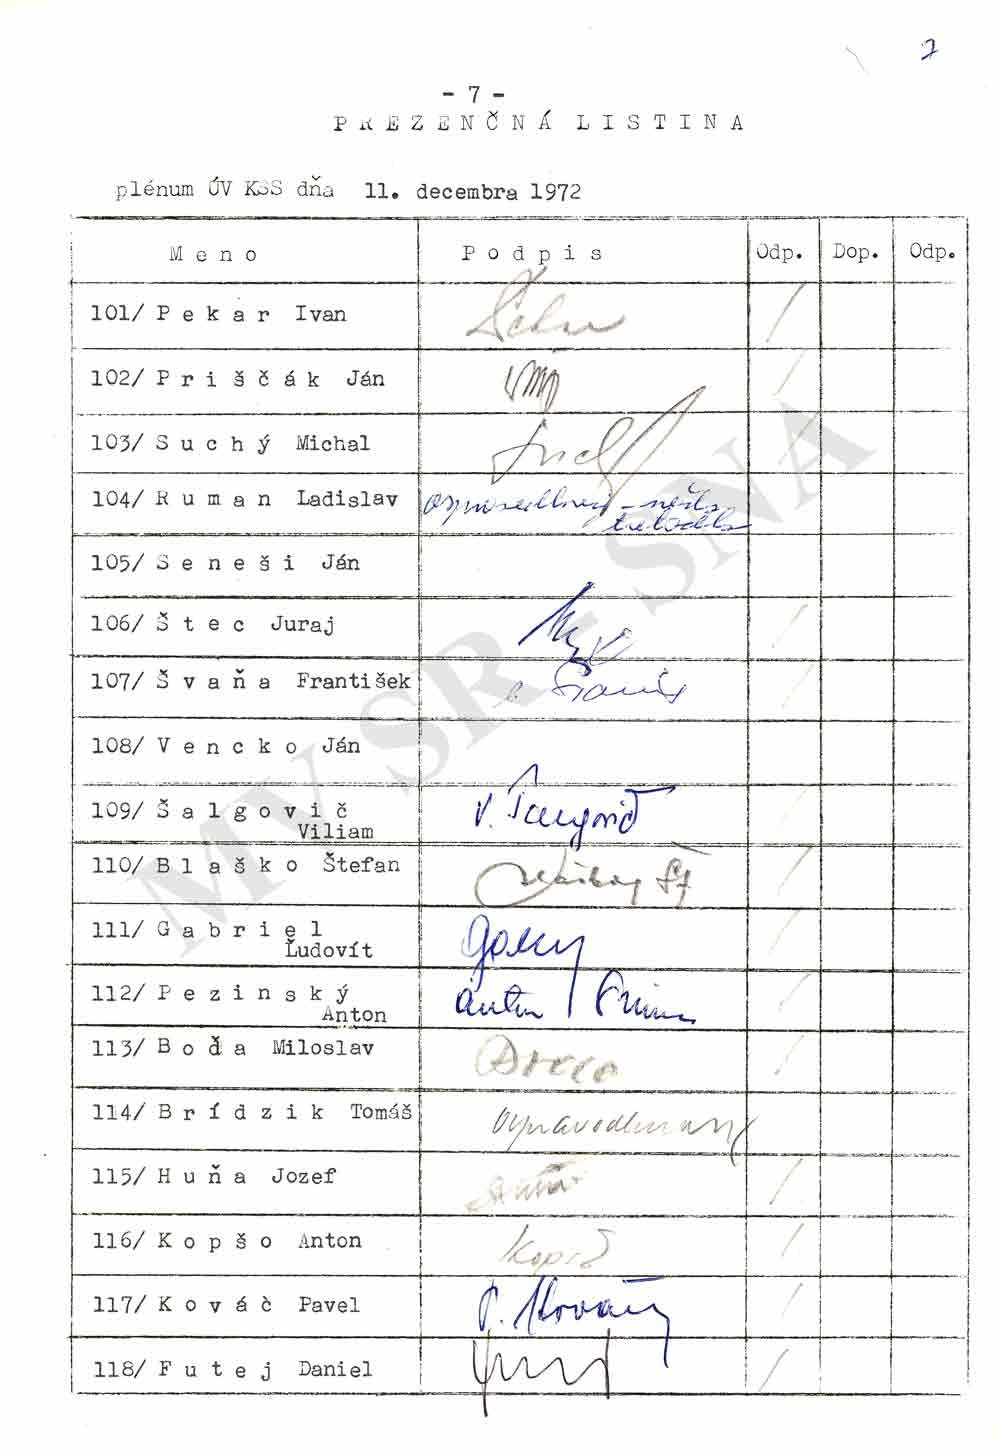 7
- 7 -
PREZENČNÁ LISTINA
plénum ÚV KSS dňa 11. decembra 1972
Meno Podpis Odp. Dop. Odp.
101/ Pekár Ivan
102/ Priščák Ján
103/ Suchý Michal
104/ Ruman Ladislav
105/ Seneši Ján
106/ Štec Juraj
107/ Švaňa František
108/ Vencko Ján
109/ Šalgovič
Viliam
V. Šalgovič
110/ Blaško Štefan
111/ Gabriel
Ľudovít
112/ Pezinský
Anton
Anton
113/ Boďa Miloslav
114/ Brídzik Tomáš ospravedlnený
115/ Huňa Jozef
116/ Kopšo Anton Kopšo
117/ Kováč Pavel P. Kováč
118/ Futej Daniel
MV SR - SNA